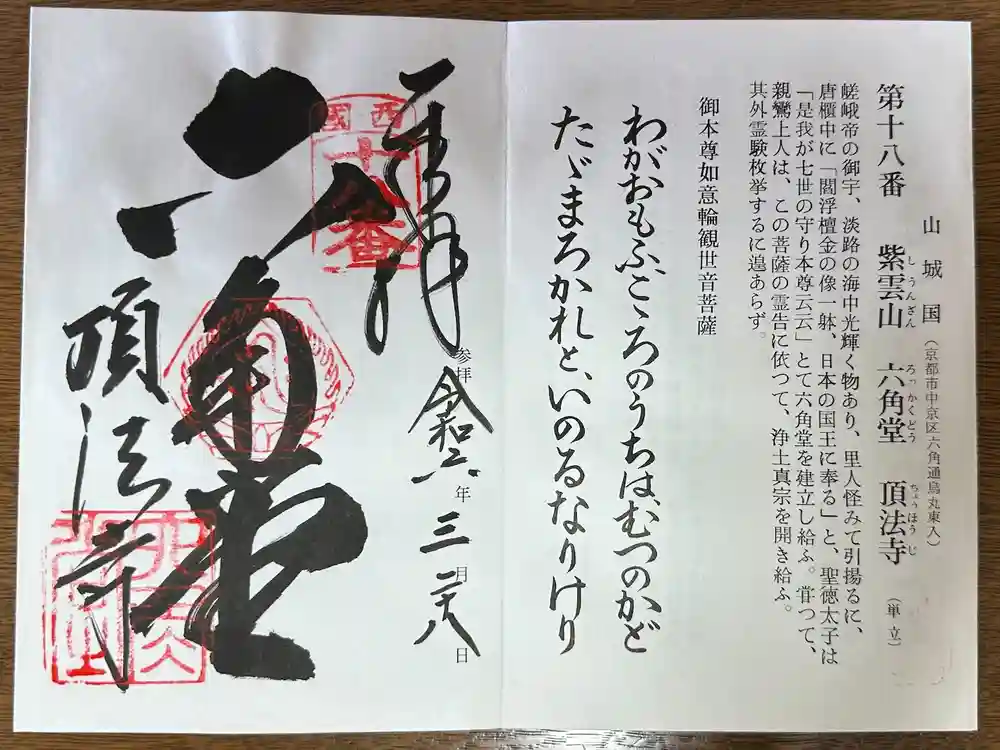 第十八番 紫雲山 六角堂 頂法寺 (単立)
しうんざん ろっかくどう ちょうほうじ
山城国 (京都市中京区六角通烏丸東入)
嵯峨帝の御宇、淡路の海中光輝く物あり、里人怪みて引揚るに、
唐櫃中に「閻浮檀金の像一躰、日本の国王に奉る」と、聖徳太子は
「是我が七世の守り本尊云云」とて六角堂を建立し給ふ。甞つて、
親鸞上人は、この菩薩の霊告に依つて、浄土真宗を開き給ふ。
其外霊験枚挙するに遑あらず。
御本尊如意輪観世音菩薩
わがおもふ、こころのうちは、むつのかど
たゞまろかれと、いのるなりけり
奉拝
西國
十八番
参拝 令和六年 三月 二八日
六角堂
頂法寺